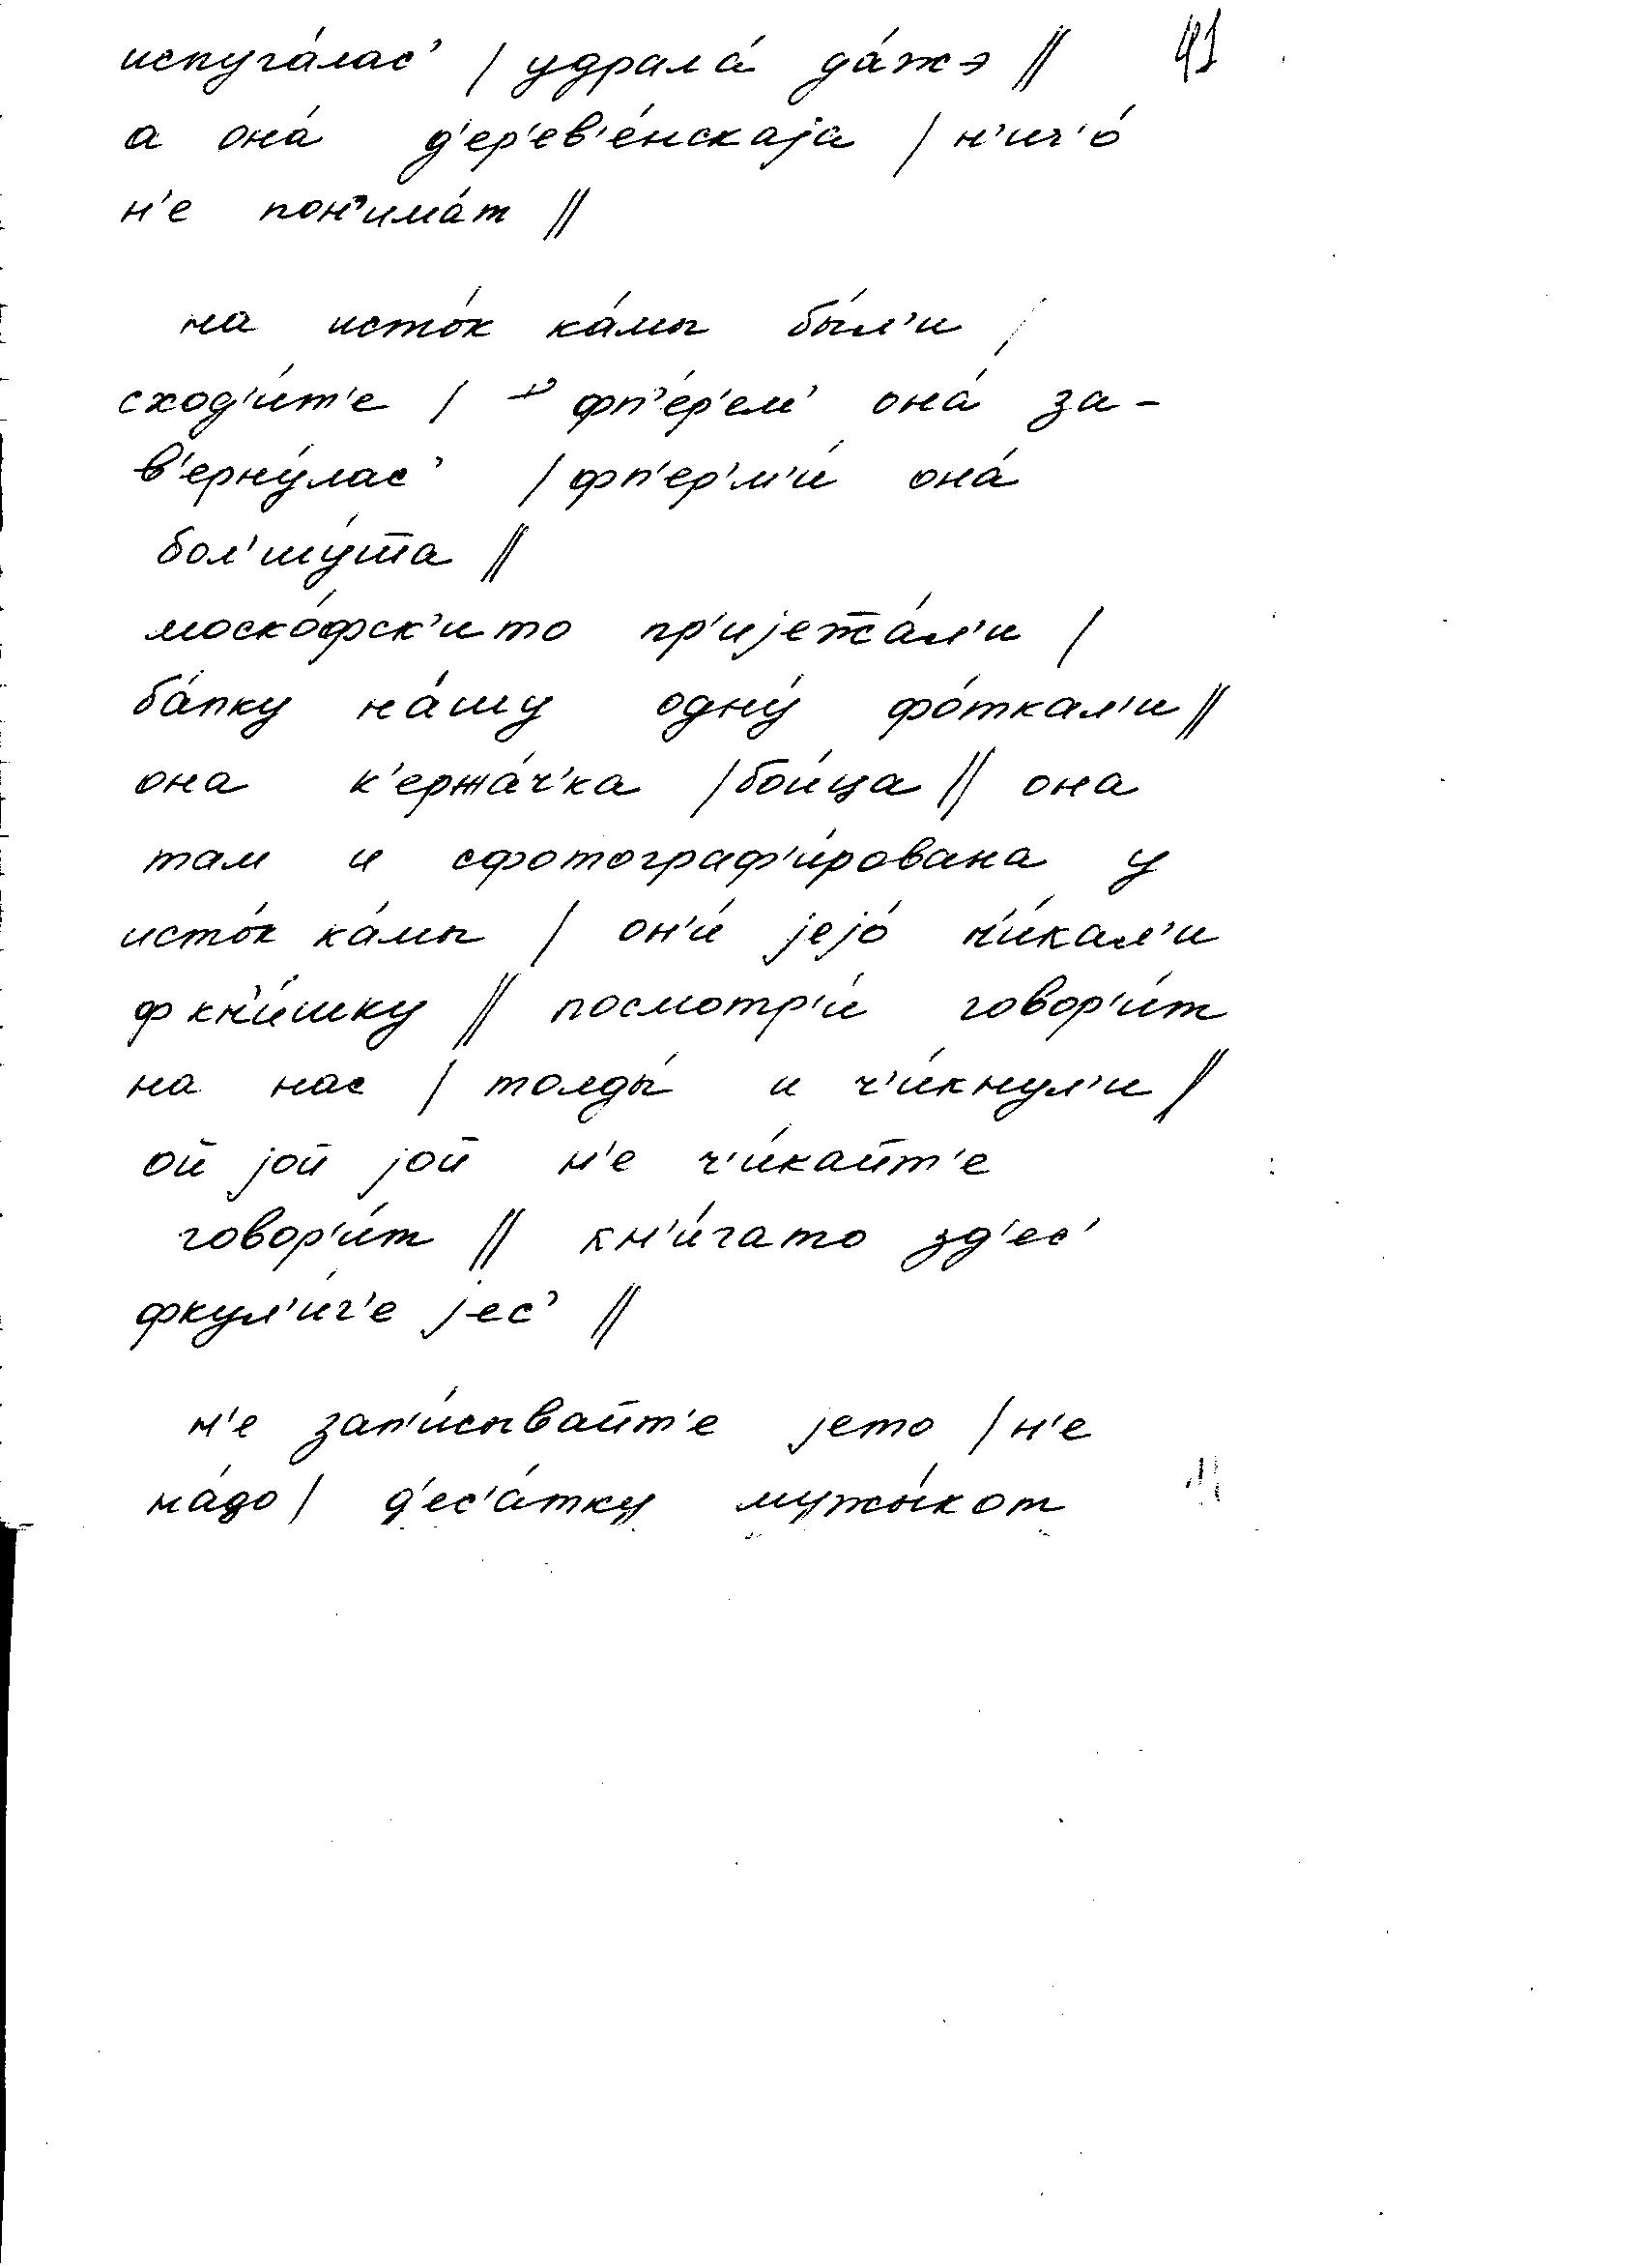 испуга́лас' / удрала́ да́жэ // 41
а она́ д'ер'ев'е́нскаjа / н'ич'о́
н'е пон'има́т //
на исто́к ка́мы бы́л'и /
сход'и́т'е / фп'е́р'ем' она́ за-
в'ерну́лас' / фп'ер'м'и́ она́
бол'шу́т̄а //
моско́фск'ито пр'иjет̄а́л'и /
ба́пку на́шу одну́ фо́ткал'и //
она к'ержа́ч'ка / бои́ца // она
там и сфотограф'и́рована у
исто́к ка́мы / он'и́ jejо́ ч'и́кал'и
ф кн'и́шку // посмотр'и́ говор'и́т
на нас / толды́ и ч'и́кнул'и //
ой jой jой н'е ч'и́кайт'е
говор'и́т // кн'и́гато зд'ес'
фкул'и́г'е jес' //
н'е зап'и́сывайт'е jето / н'е
на́до / д'ес'а́тку мужы́кот